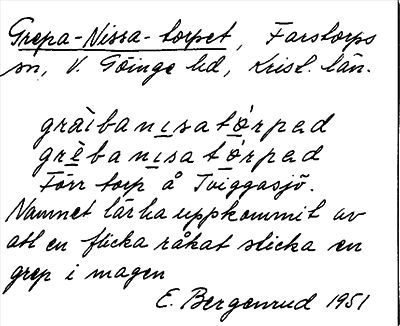 Grepa-Nissa-torpet, Farstorps
sn, V. Göinge hd, Krist. län.
gràìbanısató́rpad
grèbanısató́rpad
Förr torp å Tviggasjö.
Namnet lär ha uppkommit av
att en flicka råkat sticka en
grep i magen
E. Bergenrud 1951